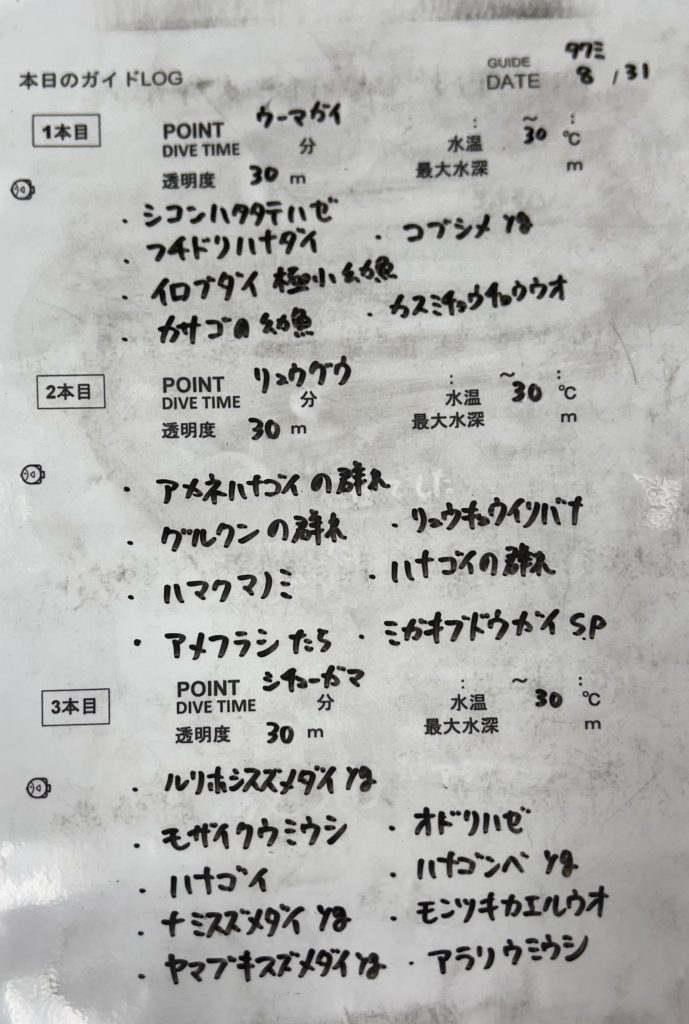 GUIDE タクミ
本日のガイドLOG DATE 8 / 31
1本目 POINT ウーマガイ : ~ :
DIVE TIME 分 水温 30 ℃
透明度 30 m 最大水深 m
・シコンハタタテハゼ
・フチドリハナダイ ・コブシメ yg
・イロブダイ 極小幼魚
・カサゴの幼魚 ・カスミチョウチョウウオ
2本目 POINT リュウグウ : ~ :
DIVE TIME 分 水温 30 ℃
透明度 30 m 最大水深 m
・アカネハナゴイの群れ
・グルクンの群れ ・リュウキュウイソバナ
・ハマクマノミ ・ハナゴイの群れ
・アメフラシたち ・ミガキブドウガイ S.P
3本目 POINT シチューガマ : ~ :
DIVE TIME 分 水温 30 ℃
透明度 30 m 最大水深 m
・ルリホシスズメダイ yg
・モザイクウミウシ ・オドリハゼ
・ハナゴイ ・ハナゴンベ yg
・ナミスズメダイ yg ・モンツキカエルウオ
・ヤマブキスズメダイ yg ・アラリウミウシ